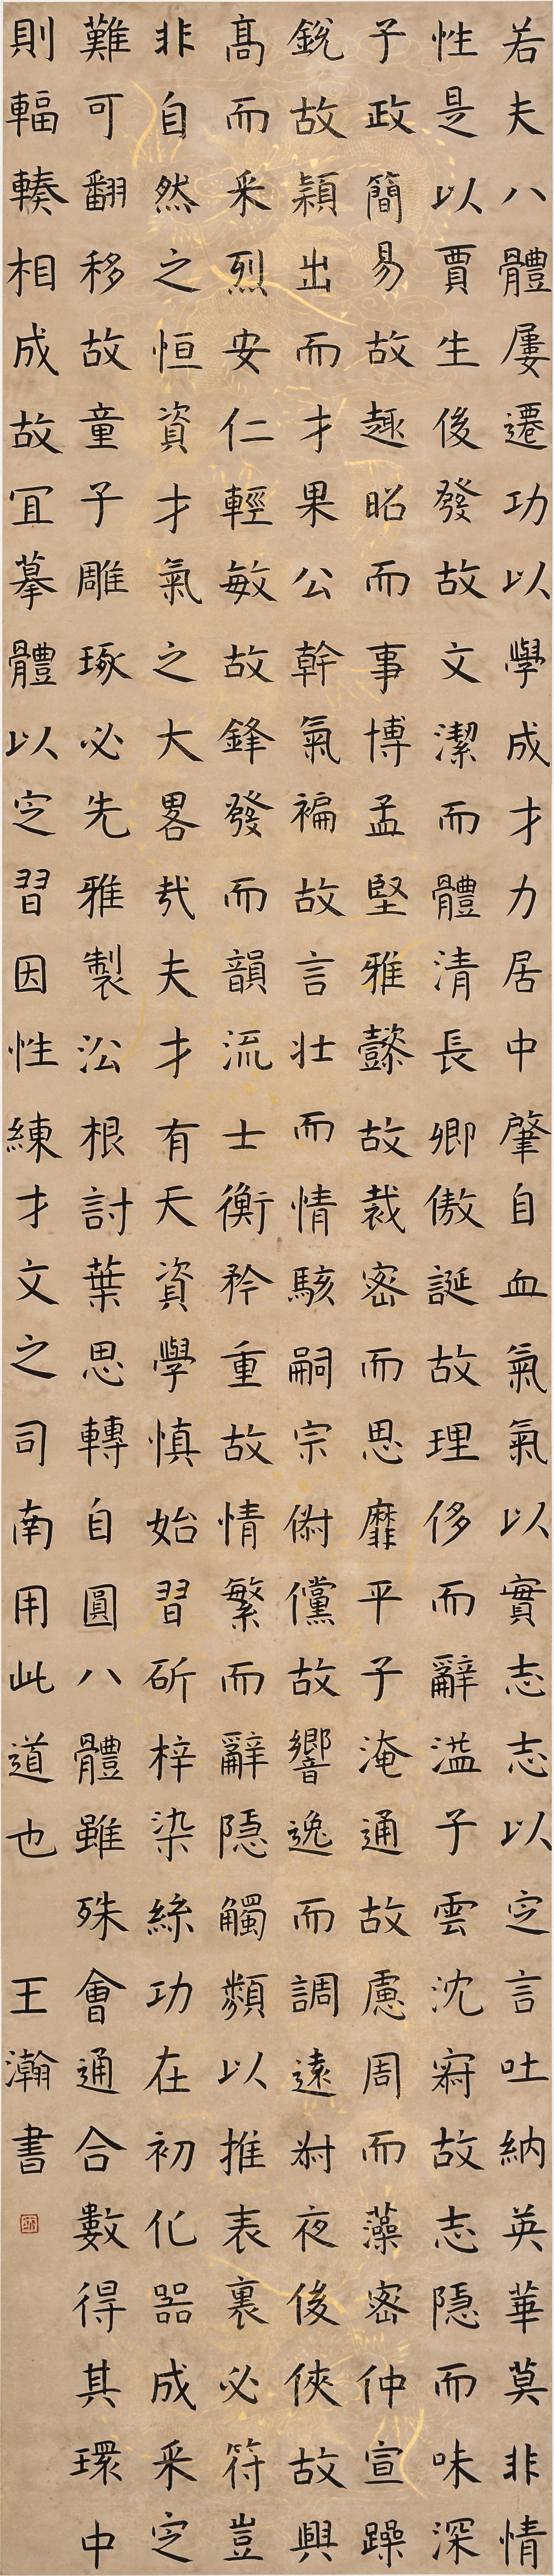 若夫八體屢遷功以學成才力居中肇自血氣氣以實志志以定言吐納英華莫非情
性是以賈生後發故文潔而體清長卿傲誕故理侈而辭溢子雲沈寂故志隱而味深
子政簡易故趣昭而事博孟堅雅懿故裁密而思靡平子淹通故慮周而藻密仲宣躁
銳故穎出而才果公幹氣褊故言壯而情駭嗣宗俶儻故響逸而調遠叔夜後俠故興
髙而采烈安仁輕敏故鋒發而韻流士衡矜重故情繁而辭隱觸類以推表裏必符豈
非自然之恒資才氣之大畧哉夫才有天資學慎始習斫梓染絲功在初化器成采定
難可翻移故童子雕琢必先雅製沿根討葉思轉自圓八體雖殊會通合數得其環中
則輻輳相成故宜摹體以定習因性練才文之司南用此道也 王瀚書